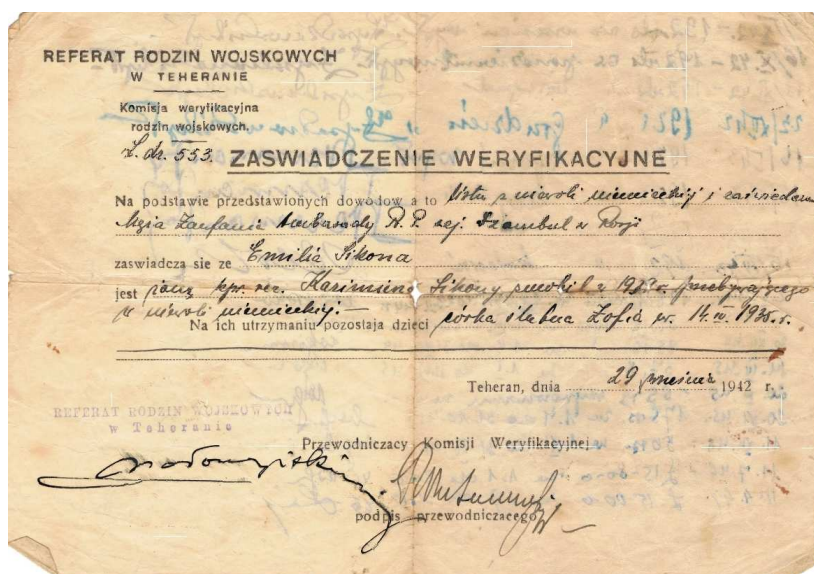 REFERAT RODZIN WOJSKOWYCH
W TEHERANIE
Komisja weryfikacyjna
rodzin wojskowych.
L. dz. 553.
ZASWIADCZENIE WERYFIKACYJNE
Na podstawie przedstawionych dowodow a to listu z niewoli niemieckiej i zaświadczen
Męża Zaufania Ambasady R.P. rej. Dzambul w Rosji
zaswiadcza sie ze Emilia Sikona
jest żoną kpr. rez. Kazimierza Sikony zmobil. w 1939 r. przebywającego
w niewoli niemieckiej.—
Na ich utrzymaniu pozostaja dzieci córka ślubna Zofia ur. 14.IV.1935.r.
Teheran, dnia 29 września 1942 r.
REFERAT RODZIN WOJSKOWYCH
w Teheranie
Przewodniczacy Komisji Weryfikacyjnej
podpis przewodniczacego